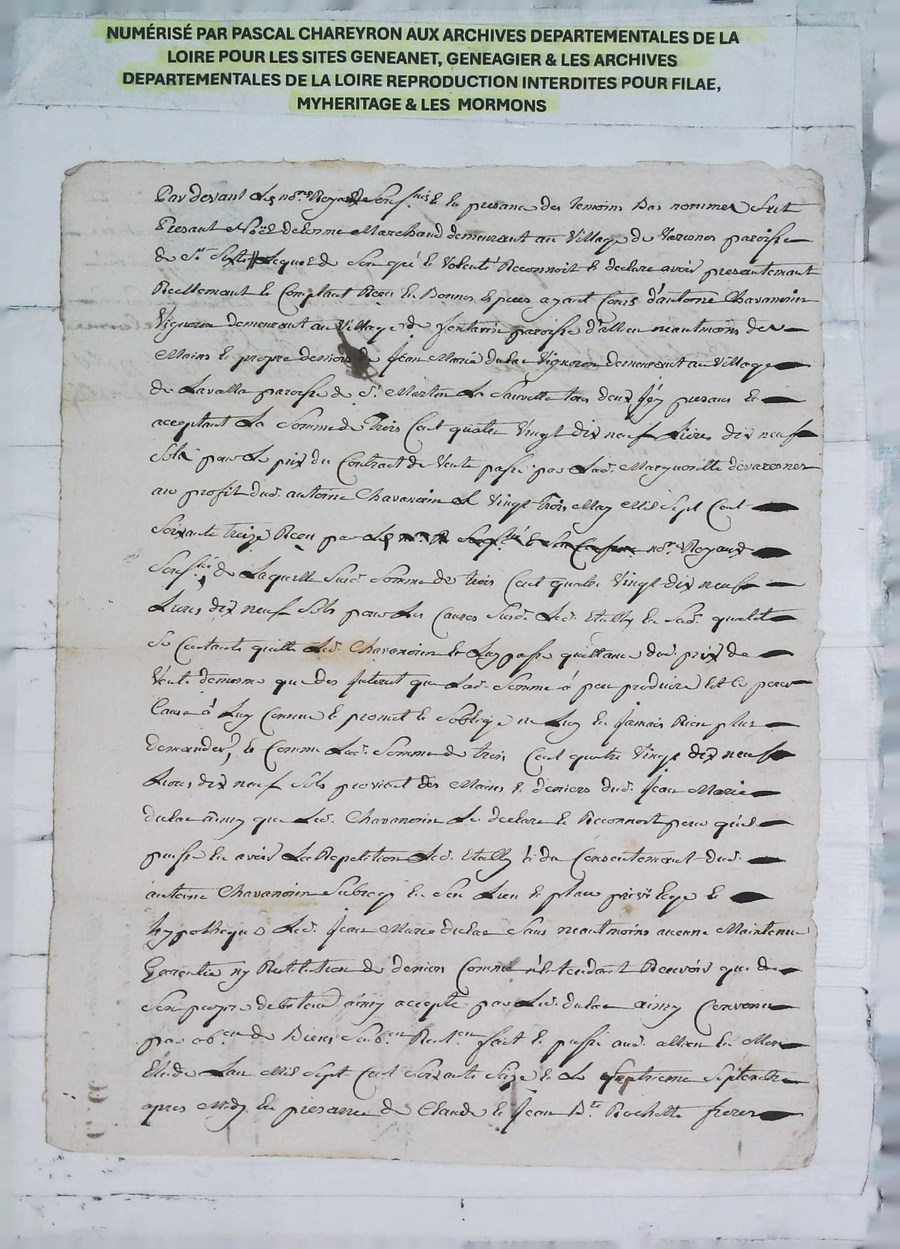 NUMÉRISÉ PAR PASCAL CHAREYRON AUX ARCHIVES DEPARTEMENTALES DE LA
LOIRE POUR LES SITES GENEANET, GENEAGIER & LES ARCHIVES
DEPARTEMENTALES DE LA LOIRE REPRODUCTION INTERDITES POUR FILAE,
MYHERITAGE & LES MORMONS
Par devant Les no.res Royaux Sous.nés Et En presance des temoins Bas nommes fut
Presant Noël delorme Marchand demeurant au Village de Varennes paroisse
de St Sixte Lequel de Son gré Et Volonté Reconnoit Et declare avoir presantement
Reellement Et Comptant Receu En Bonnes Especes ayant Cours d'antoine Chavanoin
Vigneron demeurant au Village de paroisse d'allieu neautmoins des
Mains Et propre deniers de Jean Marie dulac Vigneron demeurant au Village
de Lavalla paroisse de St Martin La Sauveté tous deux Icy presans Et
acceptant La Somme de Trois Cent quatre Vingt dix neuf Livres dix neuf
Sols pour Le prix du Contract de Vente passé par Lad. Margueritte
au profit dud. antoine Chavanoin Le Vingt trois May Mil Sept Cent
Soixante treize Receu par no.re Royaux
Sous.né de Laquelle Susd. Somme de trois Cent quatre Vingt dix neuf
Livres dix neuf Sols pour Les Causes Susd. Led. En Sad. qualité
Se Contante quitte Led. Chavanoin Et Luy passe quittance dud. prix de
Vente dememe que des Interet que Lad. Somme à peu produire Et Ce pour
Cause à Luy Connue Et promet Et S'oblige ne Luy En Jamais Rien plus
demander, Et Comme Lad. Somme de trois Cent quatre Vingt dix neuf
Livres dix neuf Sols provient des Mains Et deniers dud. Jean Marie
dulac ainsy que Led. Chavanoin Le declare Et Reconnoit pour qu'il
puisse En avoir La Repetition Led. du Consentement dud.
antoine Chavanoin Subroge En Son Lieu Et place privilege Et
hypotheque Led. Jean Marie dulac Sans neautmoins aucune Maintenue
Garentie ny Restitution de deniers Comme n'Entendant Recevoir que de
Son propre debiteur ainsy accepté par Led. dulac ainsy Convenu
par ob.on de Biens Soub.on Ren.on fait Et passé aud. allieu En Mon
Etude Lan Mil Sept Cent Soixante Seize Et Le Septieme Septembre
apres Midy En presance de Claude Et Jean B.te Rochette freres